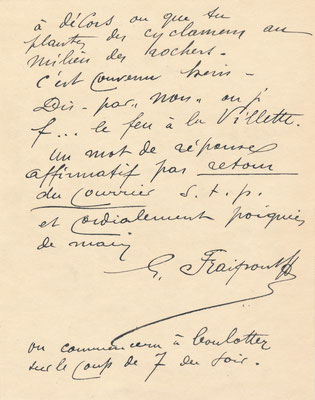 à décors ou que tu
plantes des cyclamens au
milieu des rochers -
c'est convenu hein -
Dis - pas "non" ou j'
f... le feu à la Villette.
Un mot de réponse
affirmatif par retour
du courrier s.t.p.
et cordialement poignées
de main
G. Fraipont
on commencera à boulotter
sur le coup de 7 du soir.